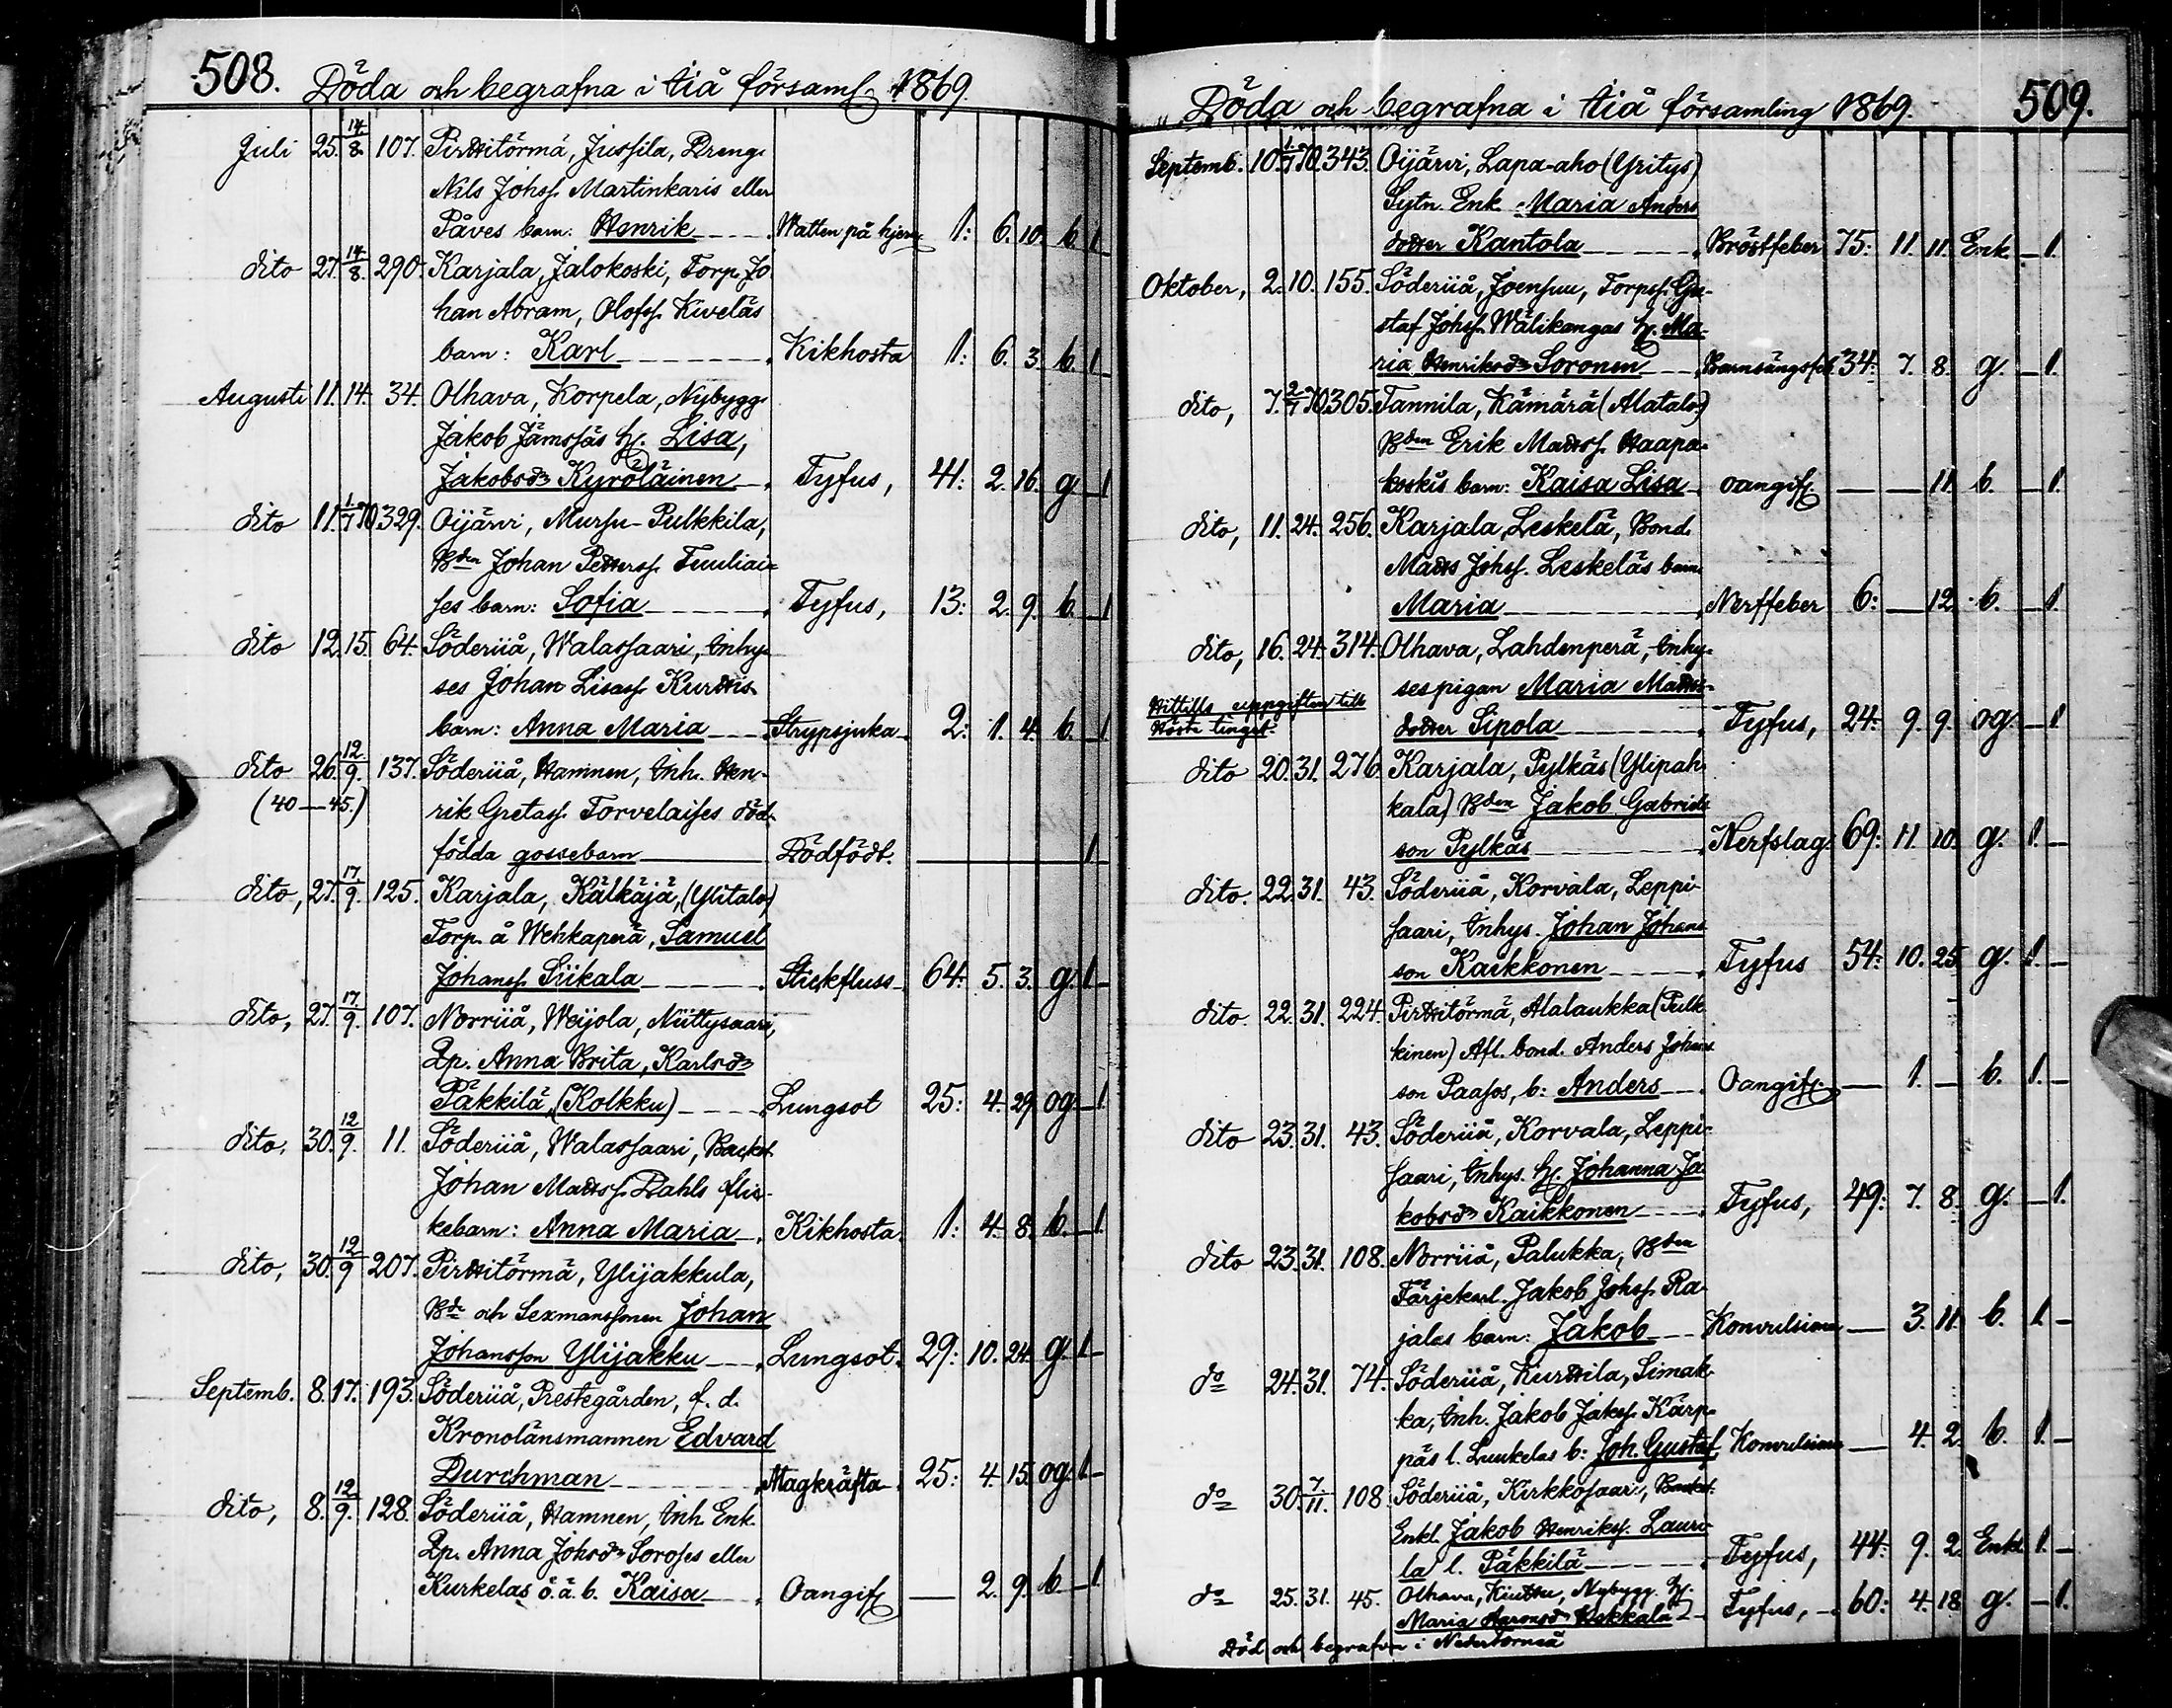 508. Döda och begrafna i Iiå församl. 1869.
Juli 25. 14/8. 107. Pirttitörmä, Jussila, Dreng.
Nils Johss. Martinkaris eller
Påves barn: Henrik Watten på hjern. 1: 6. 10. b. 1
dito 27. 14/8. 290. Karjala, Jalokoski, Torp. Jo
han Abram, Olofss. Kiveläs
barn: Karl Kikhosta 1: 6. 3. b. 1
Augusti 11. 14. 34. Olhava, Korpela, Nybygg.
Jakob Jämssäs h. Lisa,
Jakobsdr Kyröläinen Tyfus, 41: 2. 16. g. 1
dito 11. 1/7 70 329. Oijärvi, Mursu-Pulkkila,
Bden Johan Petterss. Tuuliai-
ses barn: Sofia Tyfus, 13: 2. 9. b. 1
dito 12. 15. 64. Söderiiå, Walassaari, Inhy-
ses Johan Lisass. Kurttis
barn: Anna Maria Strypsjuka 2: 1. 4. b. 1
dito 26. 12/9. 137. Söderiiå, Hamnen, Inh. Hen-
(40—45.) rik Gretass. Torvelaises död-
födda gossebarn Dödfödt. 1
dito, 27. 17/9. 125. Karjala, Kälkäjä, (Ylitalo)
Torp. å Wehkaperä, Samuel
Johanss. Siikala Stickfluss 64: 5. 3. g. 1
dito, 27. 17/9. 107. Norriiå, Weijola, Niittysaari,
Qp. Anna Brita, Karlsdr
Päkkilä, (Kolkku) Lungsot 25: 4. 29. og. 1
dito, 30. 12/9. 11. Söderiiå, Walassaari, Backst.
Johan Mattss. Dahls flic-
kebarn: Anna Maria Kikhosta. 1: 4. 8. b. 1
dito, 30. 12/9 207. Pirttitörmä, Ylijakkula,
Bde och Sexmanssonen Johan
Johansson Ylijakku Lungsot. 29: 10. 24. g. 1
Septemb. 8. 17. 193. Söderiiå, Prestegården, f. d.
Kronolänsmannen Edvard
Durchman Magkräfta 25: 4. 15. og. 1
dito, 8. 12/9. 128. Söderiiå, Hamnen, Inh. Enk.
Qp. Anna Johsdr Soroses eller
Kurkelas o. ä. b. Kaisa Oangif. 2. 9. b. 1
Döda och begrafna i Iiå församling 1869. 509.
Septemb. 10. 1/7 70. 343. Oijärvi, Lapa-aho (Yritys)
Sytn. Enk. Maria Anders
dotter Kantola Bröstfeber 75: 11. 11. Enk. 1.
Oktober, 2. 10. 155. Söderiiå, Joensuu, Torpss. Gu-
staf Johss. Wälikangas h. Ma-
ria Henriksdr Soronen Barnsängsfeb. 34: 7. 8. g. 1.
dito, 7. 2/7 70 305. Tannila, Kämärä (Alatalo)
Bden Erik Mattss. Haapa-
koskis barn: Kaisa Lisa oangif. 11. b. 1.
dito, 11. 24. 256. Karjala, Leskelä, Bond.
Matts Johss. Leskeläs barn
Maria Nerffeber 6: 12. b. 1.
dito, 16. 24. 314. Olhava, Lahdenperä, Inhy-
sespigan Maria Matts-
dotter Sipola Tyfus, 24: 9. 9. og. 1
Hittills uppgiften till
Höste tinget.
dito 20. 31. 276 Karjala, Pylkäs (Ylipah-
kala) Bden Jakob Gabriels
son Pylkäs Nerfslag 69: 11. 10. g. 1.
dito. 22. 31. 43. Söderiiå, Korvala, Leppi-
saari, Inhys. Johan Johans
son Kaikkonen Tyfus 54: 10. 25 g. 1.
dito. 22. 31. 224. Pirttitörmä, Alalaukka (Pulk
kinen) Afl. bond. Anders Johans
son Paasos, b: Anders Oangif. 1. b. 1.
dito 23. 31. 43. Söderiiå, Korvala, Leppi-
saari, Inhys. h. Johanna Ja
kobsdr Kaikkonen Tyfus, 49: 7. 8. g. 1.
dito 23. 31. 108. Norriiå, Palukka, Bden
Färjekarl. Jakob Johss. Ra-
jalas barn: Jakob Konvulsion 3. 11. b. 1.
do 24. 31. 74. Söderiiå, Kurttila, Simak-
ka, Inh. Jakob Jakss. Kärp-
päs l. Luukelas b: Joh. Gustaf Konvulsion 4. 2. b. 1.
do 30. 7/11. 108. Söderiiå, Kirkkosaari, Backst.
Enkl. Jakob Henrikss. Lauri-
la l. Päkkilä Tyfus, 44: 9. 2. Enkl. 1.
do 25. 31. 45. Olhava, Kiuttu, Nybygg. h.
Maria Aaronsdr Kekkala Tyfus, 60: 4. 18. g. 1.
Död och begrafven i Nedertorneå